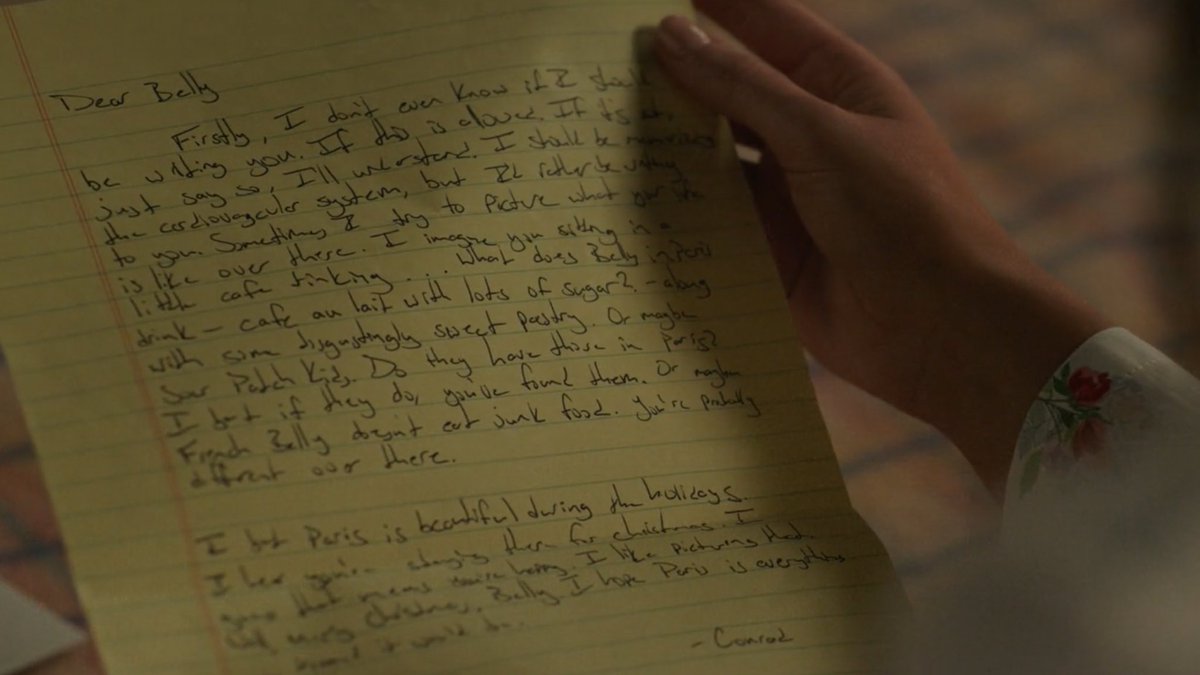 Dear Belly
Firstly, I don't even know if I should
be writing you. If this is aloued. If it's not,
just say so, I'll understand. I should be memorizing
the cardiovascular system, but I'd rather be writing
to you. Sometimes I try to picture what your life
is like over there. I imagine you sitting in a
little cafe drinking . . . what does Belly in Paris
drink - cafe au lait with lots of sugar? - along
with some disgustingly sweet pastry. Or maybe
Sour Patch Kids. Do they have those in Paris?
I bet if they do, you've found them. Or maybe
French Belly doesn't eat junk food. You're probably
different over there.
I bet Paris is beautiful during the holidays.
I hear you're staying there for christmas. I
guess that means you're happy. I like picturing that.
Well, merry christmas, Belly. I hope Paris is everything
it would be.
- Conrad